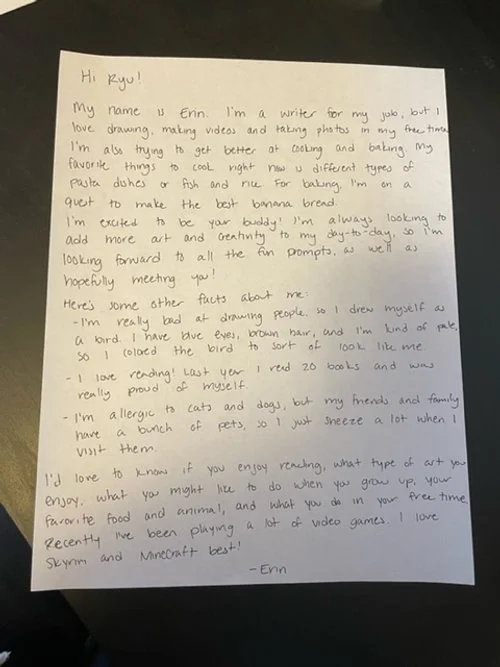 Hi Ryu!
My name is Erin. I'm a writer for my job, but I
love drawing, making videos and taking photos in my free time.
I'm also trying to get better at cooking and baking. My
favorite things to cook right now is different types of
pasta dishes or fish and rice. For baking, I'm on a
quest to make the best banana bread.
I'm excited to be your buddy! I'm always looking to
add more art and creativity to my day-to-day, so I'm
looking forward to all the fun prompts, as well as
hopefully meeting you!
Here's some other facts about me:
- I'm really bad at drawing people, so I drew myself as
a bird. I have blue eyes, brown hair, and I'm kind of pale,
so I colored the bird to sort of look like me.
- I love reading! Last year I read 20 books and was
really proud of myself.
- I'm allergic to cats and dogs, but my friends and family
have a bunch of pets, so I just sneeze a lot when I
visit them.
I'd love to know if you enjoy reading, what type of art you
enjoy, what you might like to do when you grow up, your
favorite food and animal, and what you do in your free time.
Recently I've been playing a lot of video games. I love
Skyrim and Minecraft best!
- Erin